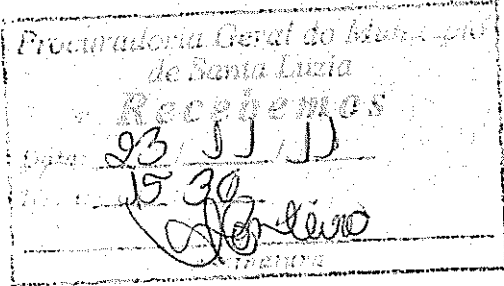 Procuradoria Geral do Município
de Santa Luzia
Recebemos
Data: 23 / 11 / 11
15 30
Assinatura